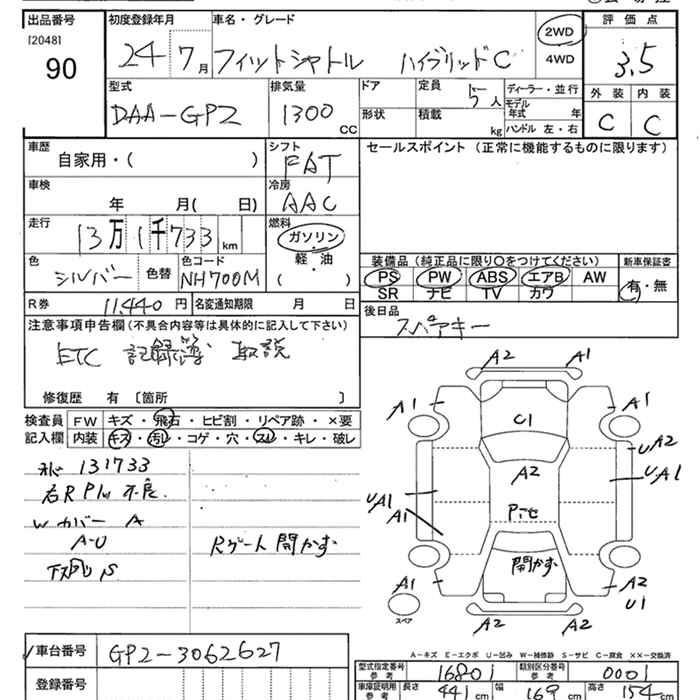 出品番号
[2048]
90
初度登録年月
24 7月
車名・グレード
フィットシャトル ハイブリッドC
2WD
4WD
評価点
3.5
型式
DAA-GP2
排気量
1300 CC
ドア
形状
定員
5人
積載
kg
ディーラー・並行
モデル年式 年
ハンドル 左・右
外装 内装
C C
車歴
自家用・( )
シフト
FAT
セールスポイント (正常に機能するものに限ります)
車検
年 月( 日)
冷房
AAC
走行
13万1千733 km
燃料
ガソリン
軽・油
( )
色
シルバー
色替
色コード
NH700M
装備品(純正品に限り○をつけてください)
PS PW ABS エアB AW
SR ナビ TV カワ
新車保証書
有・無
R券 11,440 円
名変通知期限 月 日
後日品
スペアキー
注意事項申告欄(不具合内容等は具体的に記入して下さい)
ETC 記録簿 取説
修復歴 有 〔箇所 〕
検査員記入欄
FW キズ・飛石・ヒビ割・リペア跡・×要
内装 キズ・汚レ・コゲ・穴・スレ・キレ・破レ
131733
右R P/W 不良
W カバー A
A-U
下廻りS
Rゲート開かず
A2 A1
A1 C1 A1
UA2
A2 UA1
UA1
A1
開かず
A1 A2
U1
スペア
A2 A2
A-キズ E-エクボ U-凹み W-補修跡 S-サビ C-腐食 XX-交換済
車台番号 GP2-3062627
登録番号
型式指定番号 参考 16801
類別区分番号 参考 0001
車庫証明用 参考
長さ 441 cm
幅 169 cm
高さ 154 cm